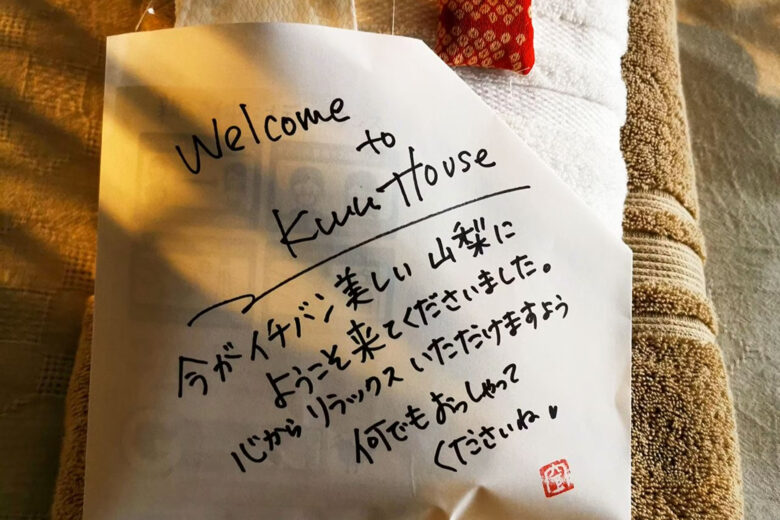 Welcome
to
Kuu House
今がイチバン美しい山梨に
ようこそ来てくださいました。
心からリラックスいただけますよう
何でもおっしゃって
くださいね。
空